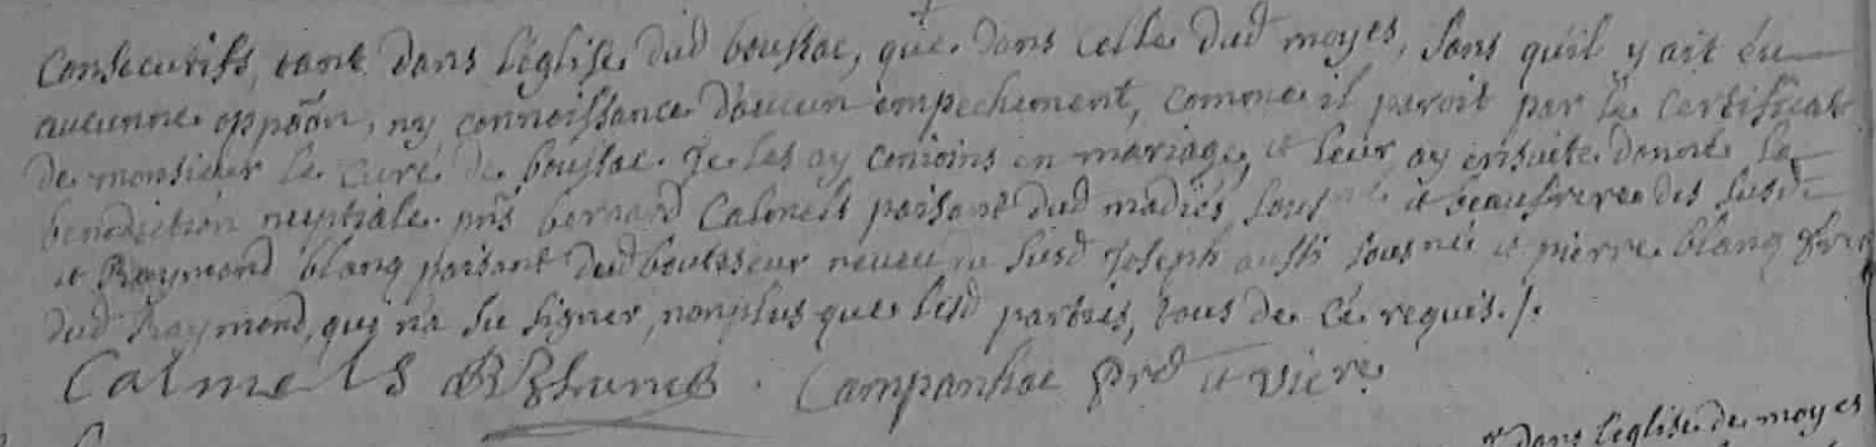 consecutifs, tant dans l'église dud boussac, que dans celle dud moyes, sans qu'il y ait eu
aucunne oppoon, ny connoissance d'aucun empechement, comme il paroit par le certificat
de monsieur le curé de boussac. je les ay conioins en mariage, et leur ay ensuite donné la
benediction nuptiale. pns bernard Calmels paisant dud madiés et beaufrere des susd
et Raymond blanq paisant dud neveu du susd Joseph aussi sousné et pierre blanq
dud Raymond, qui n'a su signer, nonplus que lesd parties, tous de ce requis./.
Calmels Campanhac et vicre
dans l'eglise de moyes